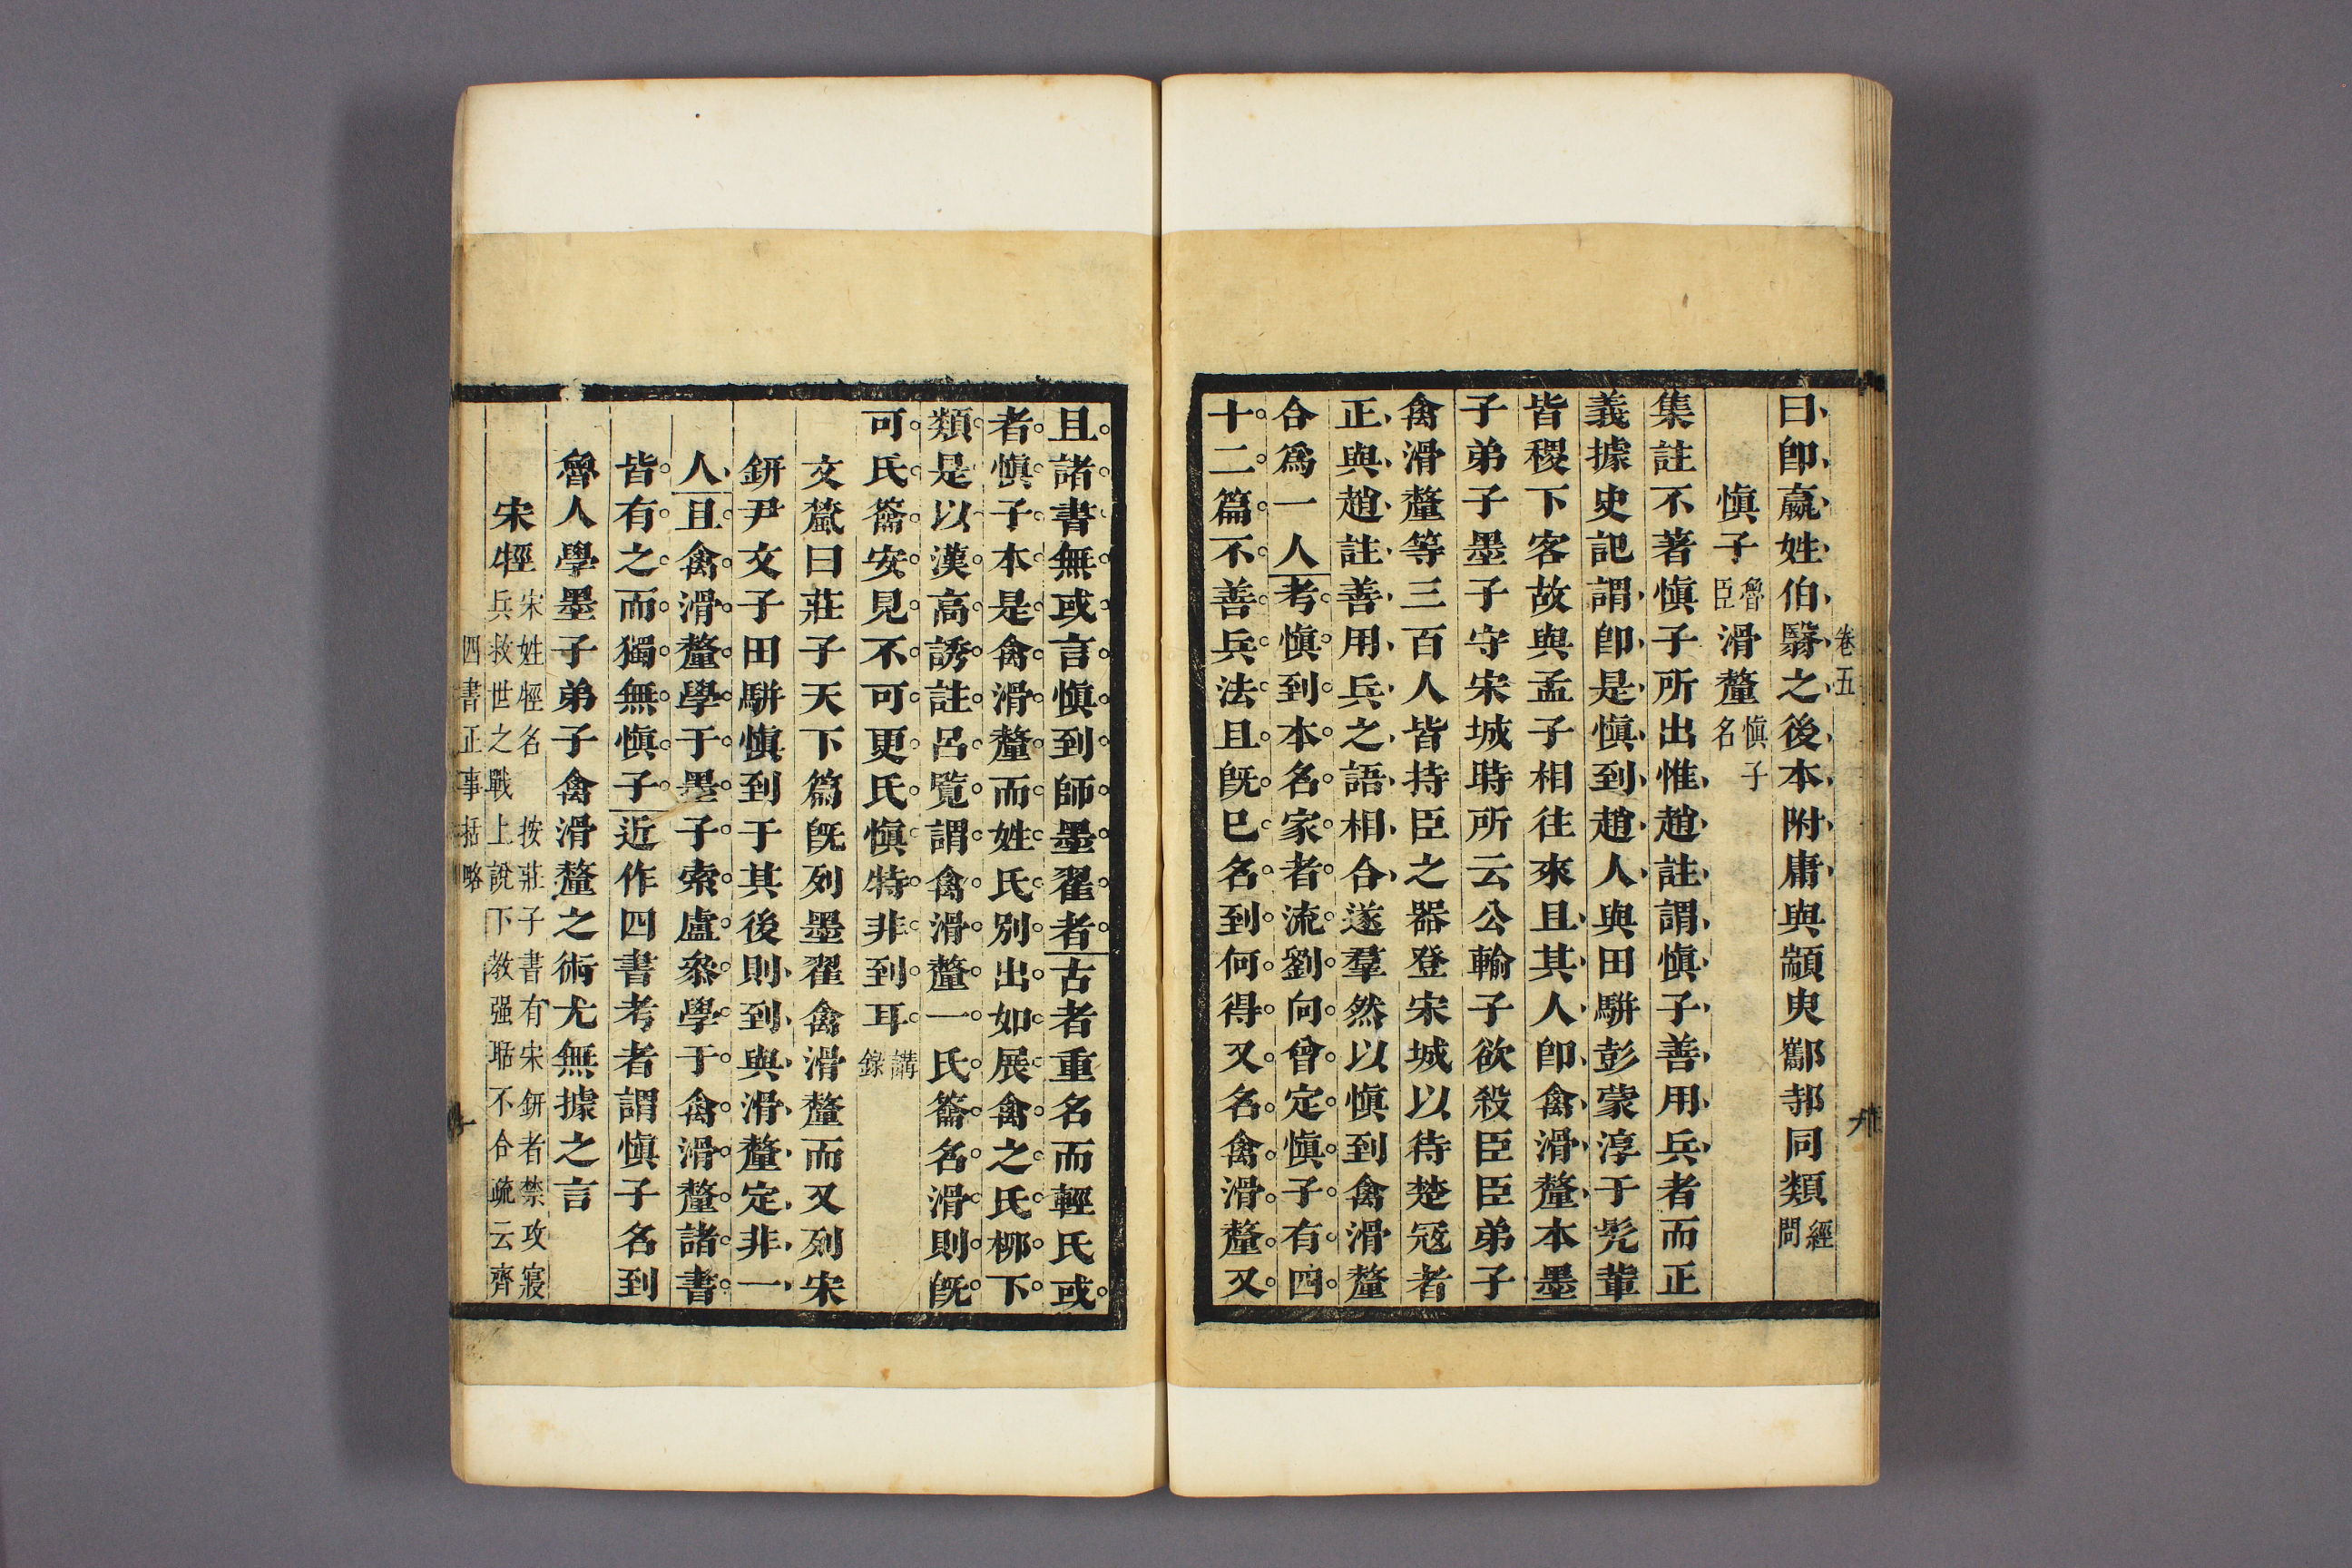 卷五
曰卽嬴姓伯翳之後本附庸與顓臾鄫邿同類經問
愼子魯臣滑釐愼子名
集註不著愼子所出惟趙註謂愼子善用兵者而正
義據史記謂卽是愼到趙人與田駢彭蒙淳于髠輩
皆稷下客故與孟子相往來且其人卽禽滑釐本墨
子弟子墨子守宋城時所云公輸子欲殺臣臣弟子
禽滑釐等三百人皆持臣之器登宋城以待楚寇者
正與趙註善用兵之語相合遂羣然以愼到禽滑釐
合爲一人考愼到本名家者流劉向曾定愼子有四
十二篇不善兵法且旣巳名到何得又名禽滑釐又
且諸書無或言愼到師墨翟者古者重名而輕氏或
者愼子本是禽滑釐而姓氏別出如展禽之氏柳下
類是以漢高誘註呂覽謂禽滑釐一氏籥名滑則旣
可氏籥安見不可更氏愼特非到耳講錄
文虨曰莊子天下篇旣列墨翟禽滑釐而又列宋
鈃尹文子田駢愼到于其後則到與滑釐定非一
人且禽滑釐學于墨子索盧叅學于禽滑釐諸書
皆有之而獨無愼子近作四書考者謂愼子名到
魯人學墨子弟子禽滑釐之術尤無據之言
宋牼宋姓牼名 按莊子書有宋鈃者禁攻寢兵救世之戰上說下教强聒不合疏云齊
四書正事括略